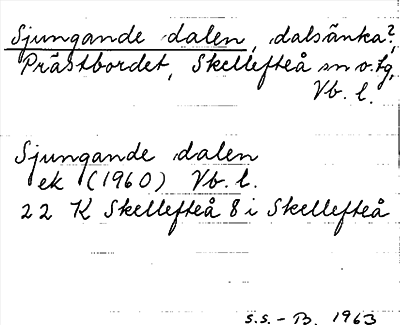 Sjungande dalen, dalsänka?,
Prästbordet, Skellefteå sn o. tg,
Vb. l.
Sjungande dalen
ek (1960) Vb. l.
22 K Skellefteå 8 i Skellefteå
s.s. - B. 1963